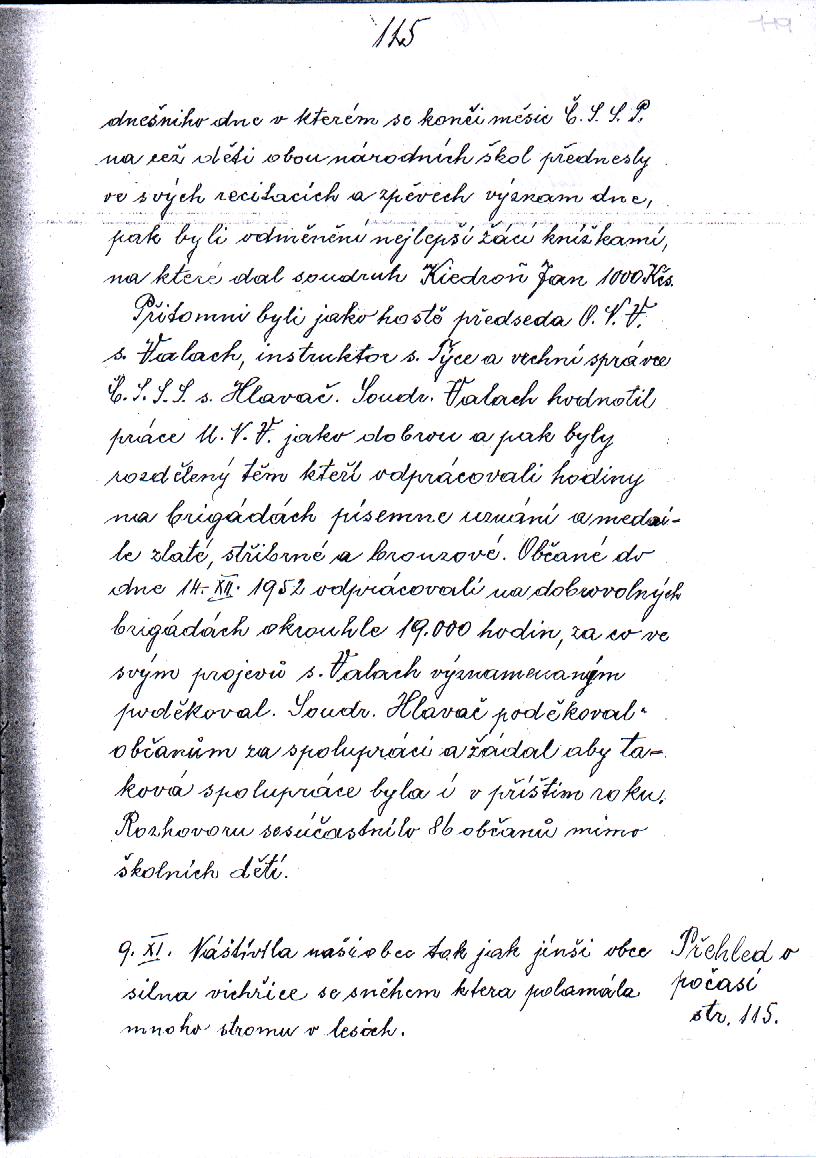 115
119
dnešniho dne v kterém se konči měsic Č. S. S. P.
na což děti obou národních škol přednesly
ve svých recitacích a zpěvech význam dne,
pak byli odměnění nejlepší žáci knížkami,
na které dal soudruh Kiedroň Jan 1000 Kčs.
Přitomni byli jako hostě předseda O. N. V.
s. Valach, instruktor s. Pyce a vrchní správce
Č. S. S. S. s. Hlavač. Soudr. Valach hodnotil
práce M. N. V. jako dobrou a pak byly
rozdělený těm kteří odprácovali hodiny
na brigádách písemne uznání a medai-
le zlaté, stříbrné a bronzové. Občané do
dne 14. XII. 1952 odprácovalí na dobrovolných
brigádách okrouhle 19.000 hodin, za co ve
svým projevů s. Valach význameném
poděkoval. Soudr. Hlavač poděkoval
občanům za spoluprácí a žádal aby ta-
ková spolupráce byla i v příštim roku.
Rozhovoru se súčastnilo 86 občanů mimo
školních dětí.
9. XI. Náštívila naši obec tak jak jinši obce
silna vichřice se sněhem ktera polamála
mnoho stromu v lesích.
Přehled o
počasí
str. 115.